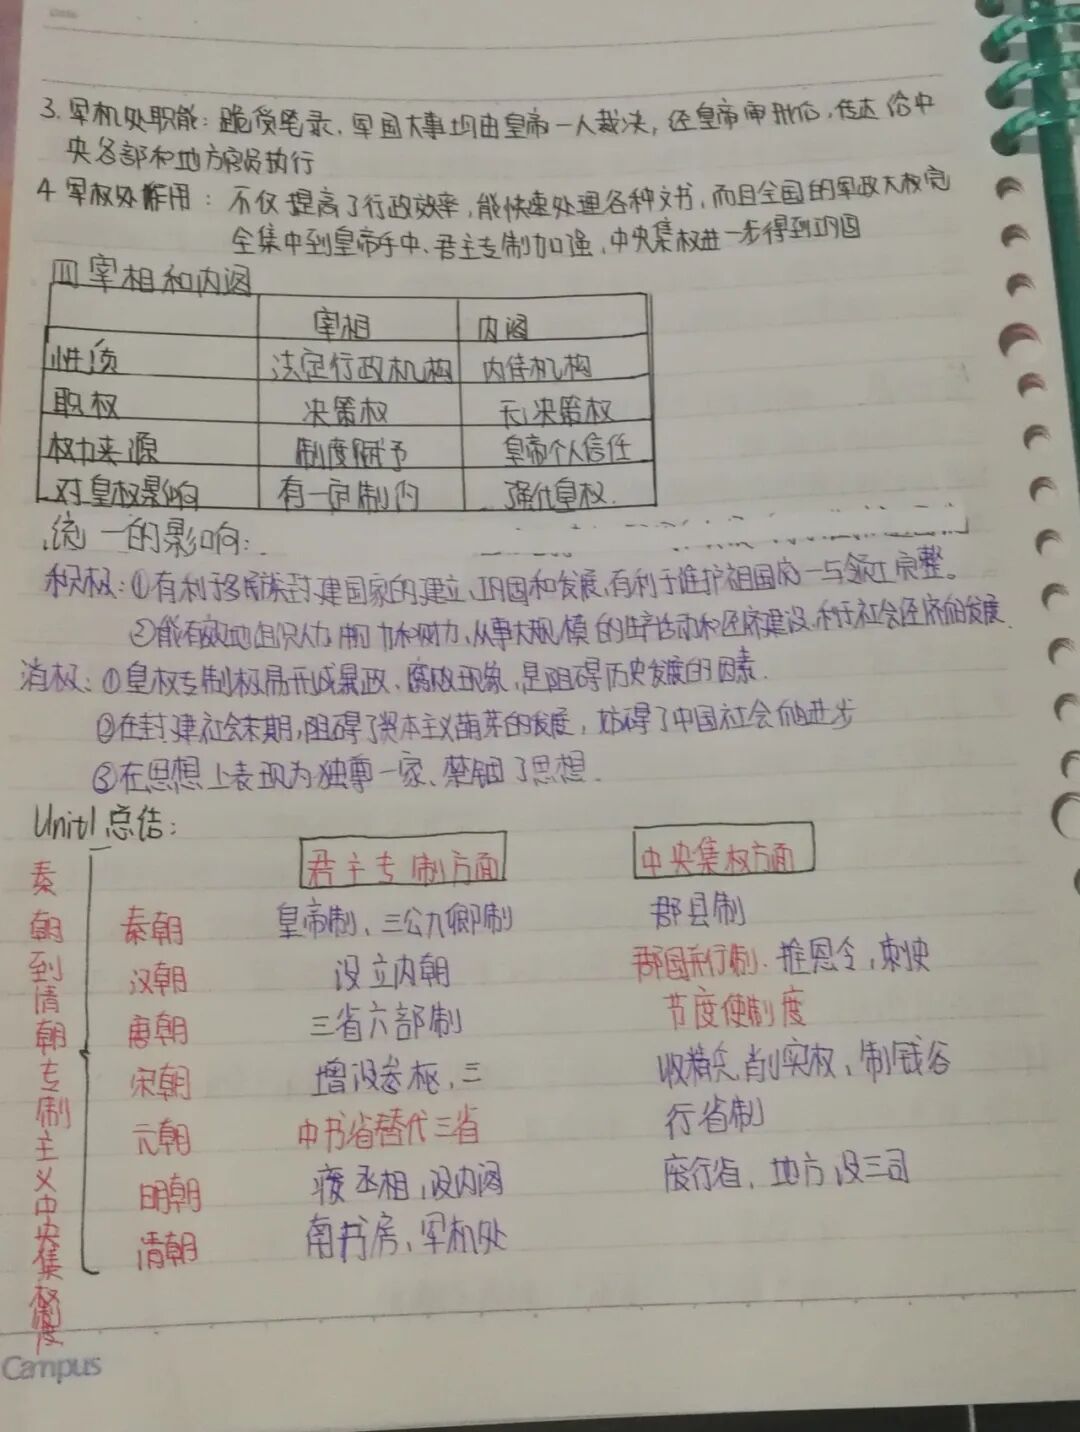 3. 军机处职能：跪受笔录，军国大事均由皇帝一人裁决，经皇帝审批后，传达给中
央各部和地方官员执行
4 军权处作用：不仅提高了行政效率，能快速处理各种文书，而且全国的军政大权完
全集中到皇帝手中、君主专制加强，中央集权进一步得到巩固
四 宰相和内阁
宰相 内阁
性质 法定行政机构 内侍机构
职权 决策权 无决策权
权力来源 制度赋予 皇帝个人信任
对皇权影响 有一定制约 强化皇权.
统一的影响：
积极：①有利于多民族封建国家的建立、巩固和发展，有利于维护祖国统一与领土完整。
②能有效地组织人力物力和财力，从事大规模的生产活动和经济建设，利于社会经济的发展.
消极：①皇权专制极易形成暴政、腐败现象，是阻碍历史发展的因素.
②在封建社会末期，阻碍了资本主义萌芽的发展，妨碍了中国社会的进步
③在思想上表现为独尊一家、禁锢了思想.
Unit1 总结：
秦朝到清朝专制主义中央集权制度
君主专制方面 中央集权方面
秦朝 皇帝制、三公九卿制 郡县制
汉朝 设立内朝 郡国并行制、推恩令，刺史
唐朝 三省六部制 节度使制度
宋朝 增设参枢，三 收精兵，削实权，制钱谷
元朝 中书省替代三省 行省制
明朝 废丞相，设内阁 废行省，地方设三司
清朝 南书房，军机处
Campus